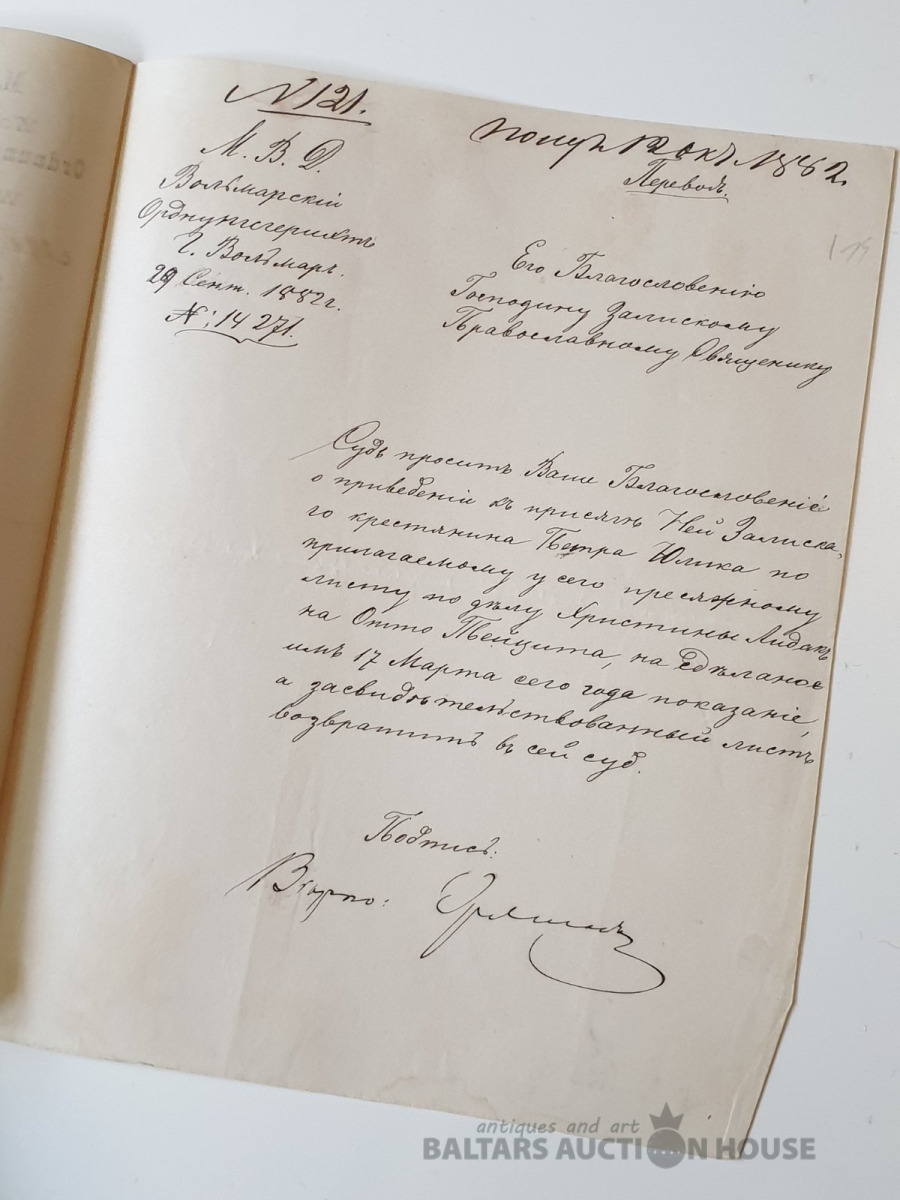 N 121.
Получ. 12 окт. 1882.
Переводъ.
М. В. Д.
Вольмарскій
Орднунгсгерихтъ
Г. Вольмаръ.
29 Сент. 1882 г.
№: 14271.
119
Его Благословенію
Господину Залискому
Православному Священику
Судъ проситъ Ваше Благословеніе
о приведеніи къ присягѣ Ней Залиска,
го крестянина Петра Юлика по
прилагаемому у сего пресяжному
листу по дѣлу Христины Лидакъ
на Отто Пейцита, на сдѣланое
имъ 17 Марта сего года показаніе,
а засвидѣтельствованный листъ
возвратить въ сей суд.
Подпись:
Вѣрно:
antiques and art
BALTARS AUCTION HOUSE